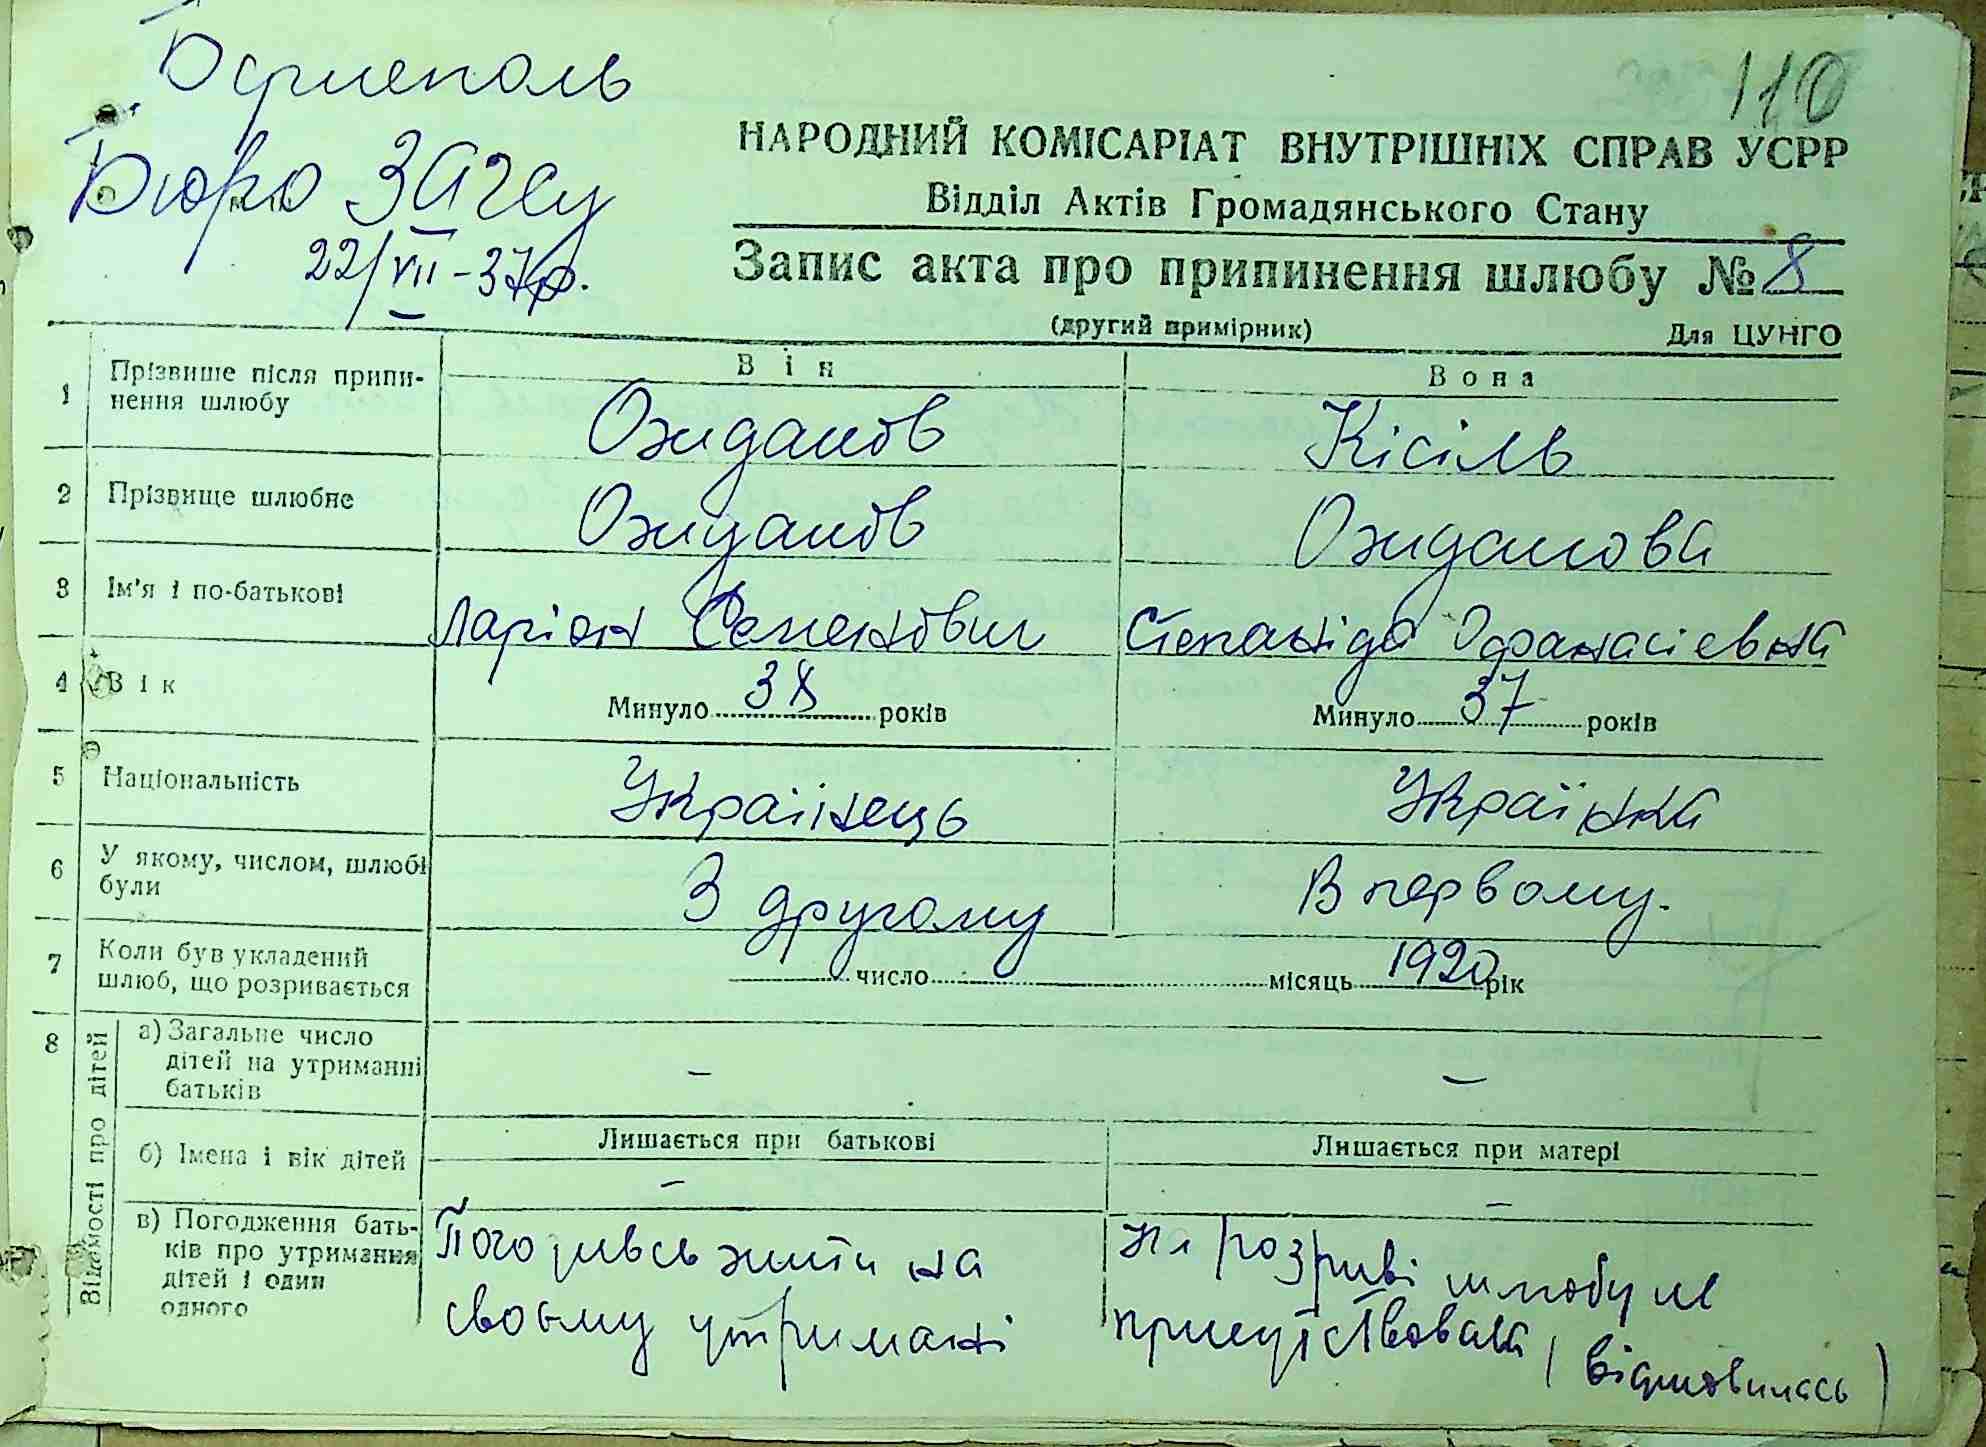 Борисполь
110
Бюро ЗАГСу
22/VII-37р.
НАРОДНИЙ КОМІСАРІАТ ВНУТРІШНІХ СПРАВ УСРР
Відділ Актів Громадянського Стану
Запис акта про припинення шлюбу № 8
(другий примірник) Для ЦУНГО
Він Вона
1 Прізвище після припи-
нення шлюбу Ожиданов Кісіль
2 Прізвище шлюбне Ожиданов Ожиданова
3 Ім'я і по-батькові Ларіон Семенович Степаніда Офанасієвна
4 Вік Минуло 38 років Минуло 37 років
5 Національність Українець Українка
6 У якому, числом, шлюбі
були З другому В первому.
7 Коли був укладений
шлюб, що розривається число місяць 1920 рік
8 Відомості про дітей
а) Загальне число
дітей на утриманні
батьків – –
Лишається при батькові Лишається при матері
б) Імена і вік дітей – –
в) Погодження бать-
ків про утримання
дітей і один
одного
жити на
своєму утримані
На розриві шлюбу не
присутствовала (відмовилась)